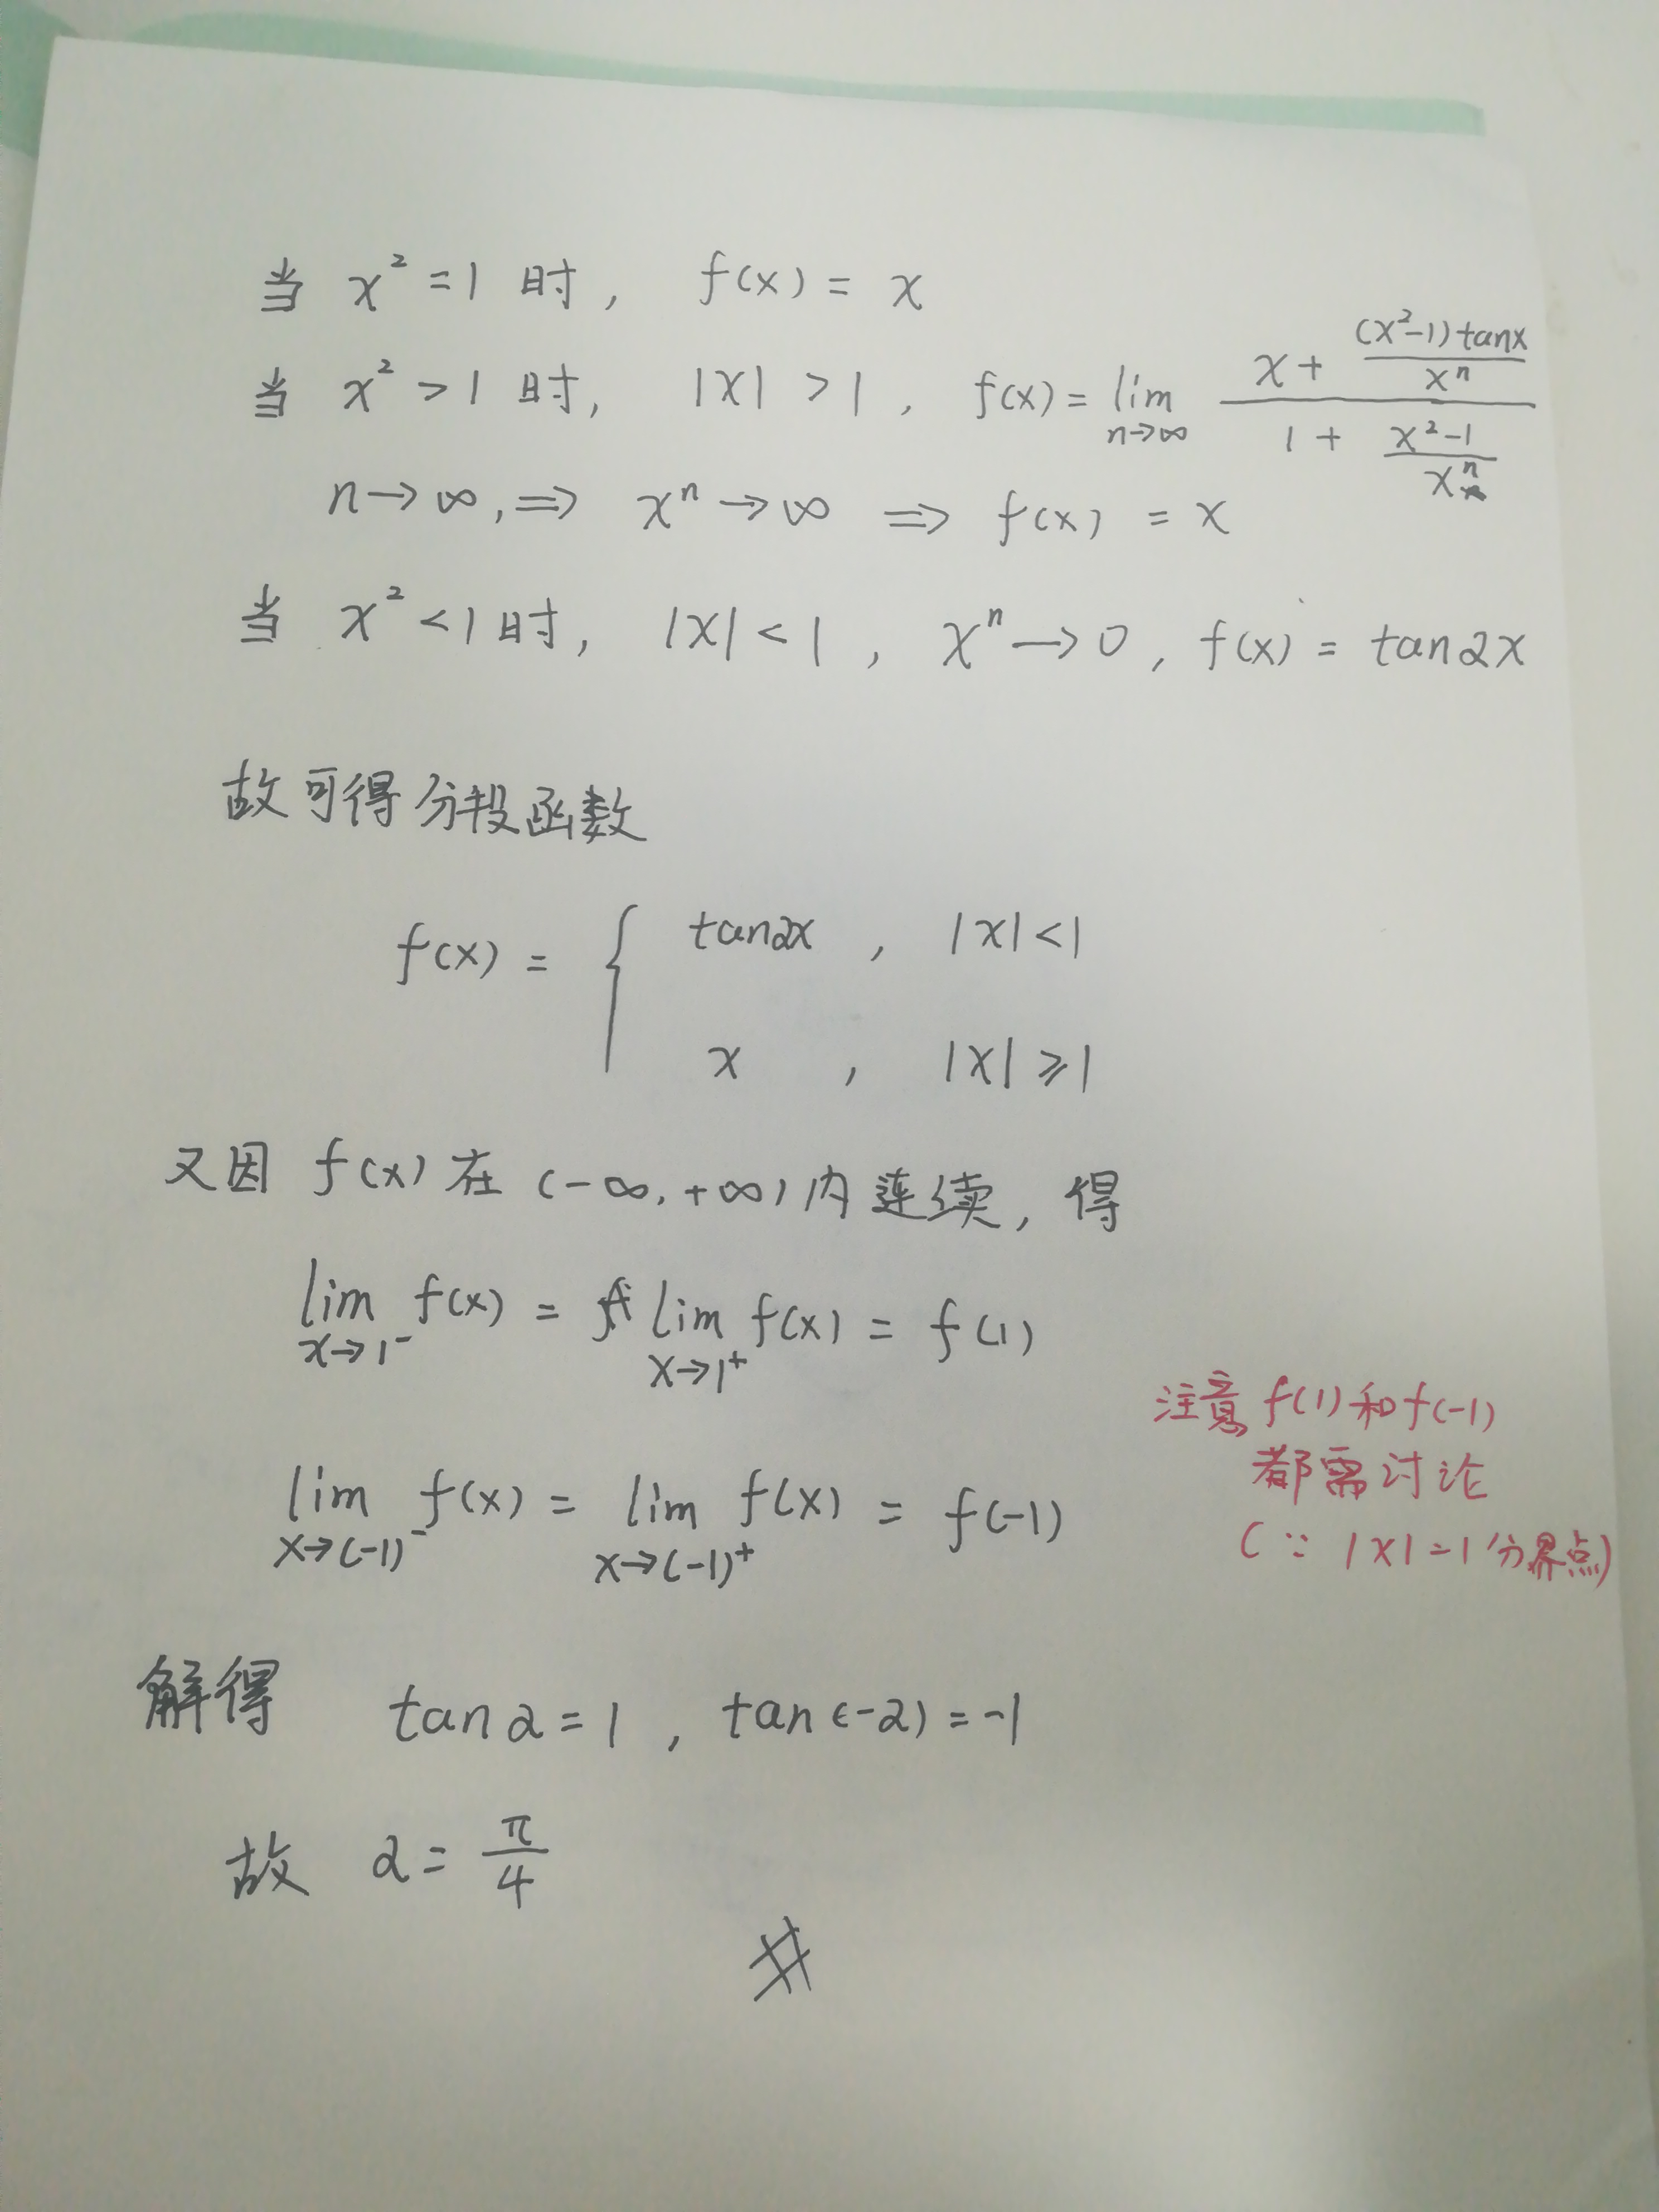 当 x² = 1 时, f(x) = x
当 x² > 1 时, |x| > 1, f(x) = lim_{n→∞} (x + (x²-1)tanx / xⁿ) / (1 + (x²-1) / xⁿ)
n→∞, ⇒ xⁿ→∞ ⇒ f(x) = x
当 x² < 1 时, |x| < 1, xⁿ→0, f(x) = tanαx
故可得分段函数
f(x) = { tanαx , |x| < 1
x , |x| ≥ 1
又因 f(x) 在 (-∞, +∞) 内连续, 得
lim_{x→1⁻} f(x) = lim_{x→1⁺} f(x) = f(1)
lim_{x→(-1)⁻} f(x) = lim_{x→(-1)⁺} f(x) = f(-1)
注意 f(1) 和 f(-1)
都需讨论
(∵ |x| = 1 分界点)
解得 tanα = 1, tan(-α) = -1
故 α = π/4
#